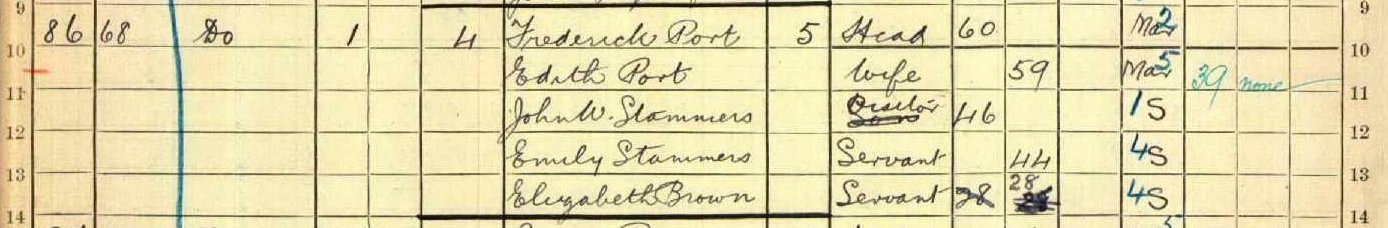 9 9
86 68 Do 1 4 Frederick Port 5 Head 60 Mar 2
10 10
Edith Port Wife 59 Mar 5 39 none
11 11
John W. Stammers Visitor Son 46 1 S
12 12
Emily Stammers Servant 44 4 S
13 13
28
Elizabeth Brown Servant 28 28 4 S
14 14
5